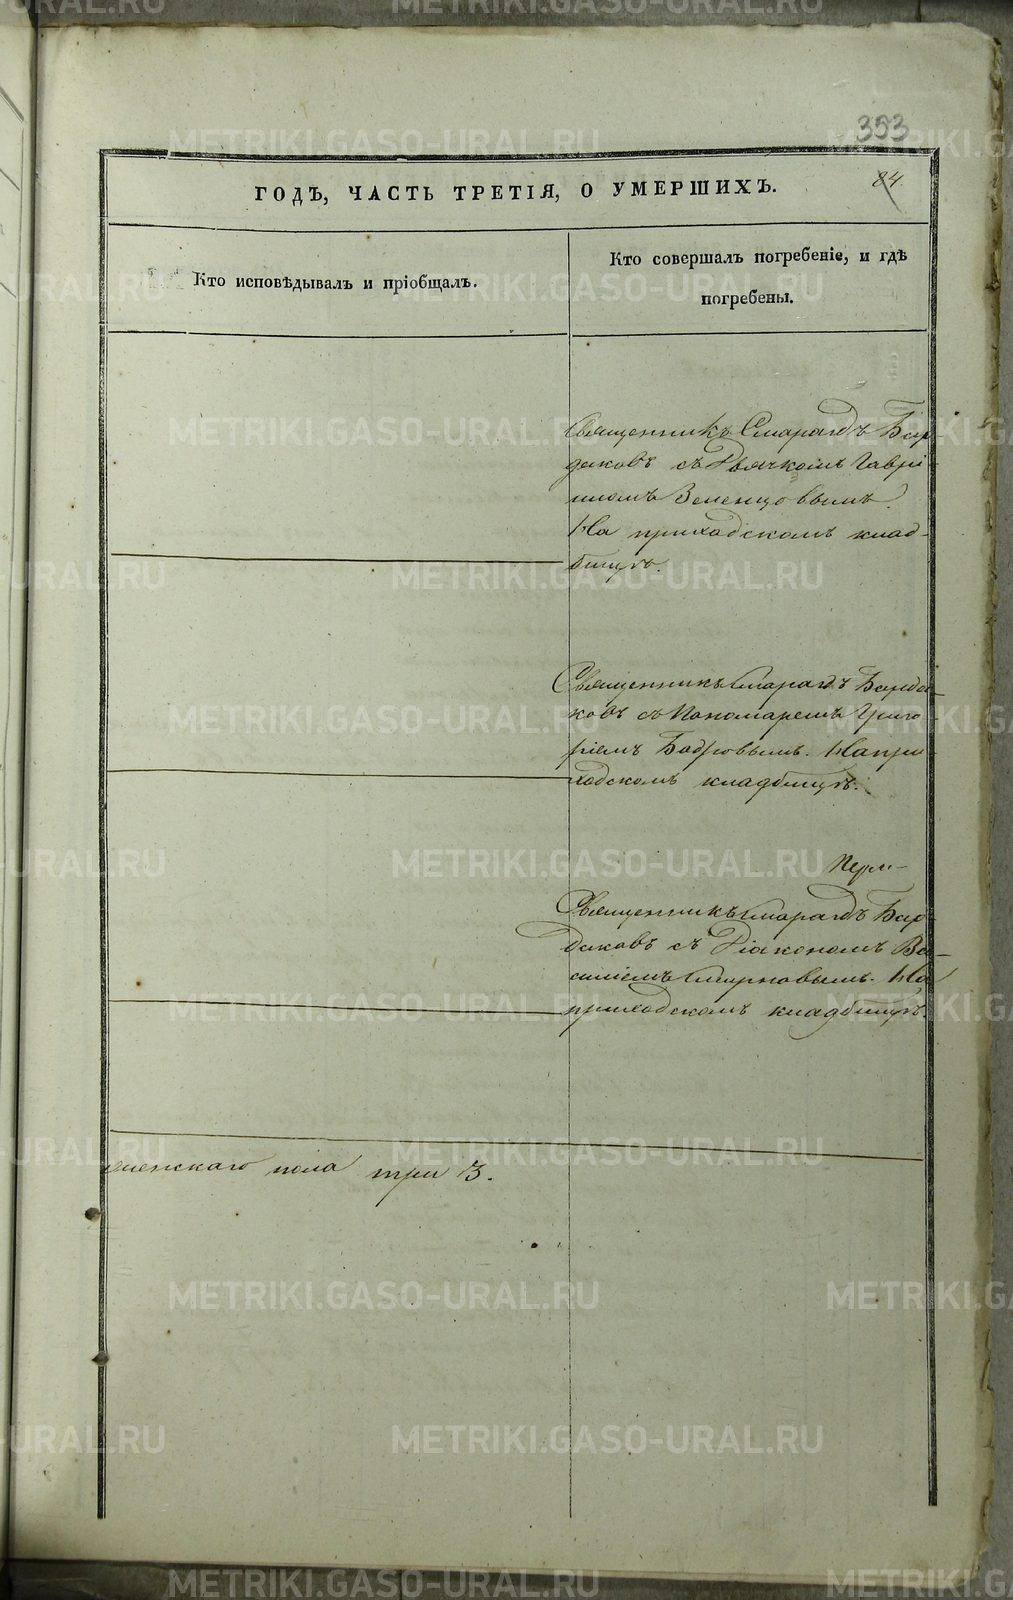 353
84
ГОДЪ, ЧАСТЬ ТРЕТІЯ, О УМЕРШИХЪ.
Кто исповѣдывалъ и пріобщалъ.
Кто совершалъ погребеніе, и гдѣ
погребены.
Священникъ Смарагдъ Бар-
даковъ съ Дьячкомъ Гаврі-
иломъ Зеленцовымъ.
На приходскомъ клад-
бищѣ.
Священникъ Смарагдъ Барда-
ковъ съ Пономаремъ Григо-
ріемъ Бодровымъ. На при-
ходскомъ кладбищѣ.
Священникъ Смарагдъ Бар-
даковъ съ Діакономъ Ва-
силіемъ Смирновымъ. На
приходскомъ кладбищѣ.
женскаго пола три 3.
METRIKI.GASO-URAL.RU